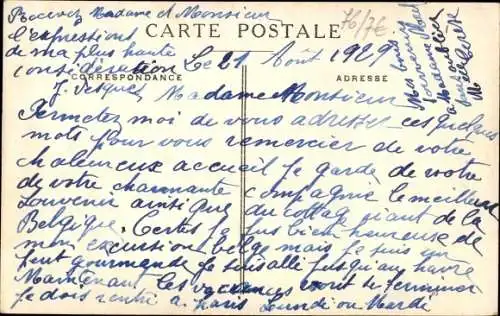 Recevez Madame et Monsieur
l'expressions
de ma plus haute
considération
J. Vesques
CARTE POSTALE
CORRESPONDANCE
ADRESSE
Le 21 Août 1929
Madame Monsieur
Permetez moi de vous adresser ces quelques
mots pour vous remercier de votre
chaleureux accueil je garde de votre
de votre charmante compagnie le meilleur
souvenir ainsi que du collage géant de la
Belgique. Certes je suis bien heureuse de
mon excursion belge mais je suis un
peut gourmande je suis allé jusqu'au havre
Maintenant les vacances vont se terminer
je dois rentré a Paris Lundi ou Mardi
Mes bons